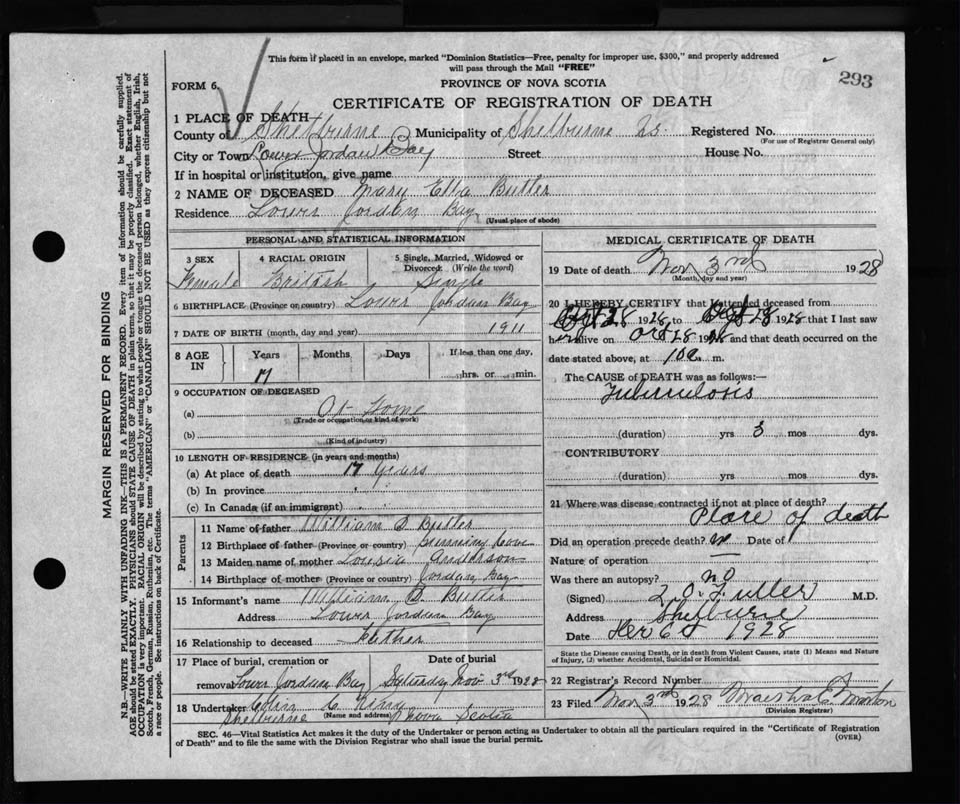 This form if placed in an envelope, marked "Dominion Statistics—Free, penalty for improper use, $300," and properly addressed
will pass through the Mail "FREE"
293
FORM 6.
PROVINCE OF NOVA SCOTIA
CERTIFICATE OF REGISTRATION OF DEATH
1 PLACE OF DEATH
County of Shelburne Municipality of Shelburne 25. Registered No.
(For use of Registrar General only)
City or Town Lower Jordan Bay Street House No.
If in hospital or institution, give name
2 NAME OF DECEASED Mary Ella Butler
Residence Lower Jordan Bay (Usual place of abode)
PERSONAL AND STATISTICAL INFORMATION
3 SEX 4 RACIAL ORIGIN 5 Single, Married, Widowed or
Divorced: (Write the word)
Female British Single
6 BIRTHPLACE (Province or country) Lower Jordan Bay
7 DATE OF BIRTH (month, day and year) 1911
8 AGE IN Years Months Days If less than one day,
17 hrs. or min.
9 OCCUPATION OF DECEASED
(a) At Home
(Trade or occupation or kind of work)
(b)
(Kind of industry)
10 LENGTH OF RESIDENCE (in years and months)
(a) At place of death 17 years
(b) In province
(c) In Canada (if an immigrant)
Parents
11 Name of father William S Butler
12 Birthplace of father (Province or country) Cove
13 Maiden name of mother Louisa Anderson
14 Birthplace of mother (Province or country) Jordan Bay
15 Informant's name William S. Butler
Address Lower Jordan Bay
16 Relationship to deceased Father
17 Place of burial, cremation or Date of burial
removal Lower Jordan Bay Saturday Nov 3rd 1928
18 Undertaker
Shelburne (Name and address) Nova Scotia
MEDICAL CERTIFICATE OF DEATH
19 Date of death Nov 3rd 1928
(Month, day and year)
20 I HEREBY CERTIFY that I attended deceased from
28 1928 to 28 1928 that I last saw
her alive on Oct 28 1928 and that death occurred on the
date stated above, at 10 a m.
The CAUSE of DEATH was as follows:—
Tuberculosis
(duration) yrs 3 mos dys.
CONTRIBUTORY
(duration) yrs mos dys.
21 Where was disease contracted if not at place of death?
Place of death
Did an operation precede death? Date of
Nature of operation
Was there an autopsy? no
(Signed) Fuller M.D.
Address Shelburne
Date 1928
State the Disease causing Death, or in death from Violent Causes, state (1) Means and Nature
of Injury, (2) whether Accidental, Suicidal or Homicidal.
22 Registrar's Record Number
23 Filed Nov 3rd 1928 Marshal C. Morton
(Division Registrar)
SEC. 46—Vital Statistics Act makes it the duty of the Undertaker or person acting as Undertaker to obtain all the particulars required in the "Certificate of Registration
of Death" and to file the same with the Division Registrar who shall issue the burial permit.
(OVER)
MARGIN RESERVED FOR BINDING
N.B.—WRITE PLAINLY WITH UNFADING INK—THIS IS A PERMANENT RECORD. Every item of information should be carefully supplied.
AGE should be stated EXACTLY. PHYSICIANS should STATE CAUSE OF DEATH in plain terms, so that it may be properly classified. Exact statement of
OCCUPATION is very important. RACIAL ORIGIN will be described by stating to what people or tongue the deceased person belonged, whether English, Irish,
Scotch, French, German, Russian, Ruthenian, etc. The terms "AMERICAN" or "CANADIAN" SHOULD NOT BE USED as they express citizenship but not
a race or people. See instructions on back of Certificate.